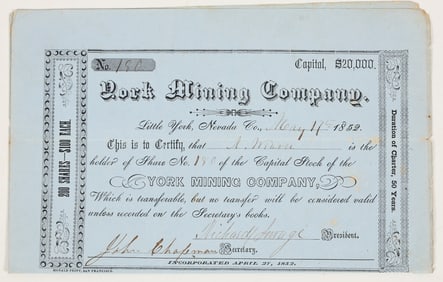 No. 180
Capital, $20,000.
York Mining Company.
Little York, Nevada Co., May 1852.
This is to Certify, that A. is the
holder of Share No. 180 of the Capital Stock of the
YORK MINING COMPANY,
Which is transferable, but no transfer will be considered valid
unless recorded on the Secretary's books.
Richard Savage President.
John Chapman Secretary.
INCORPORATED APRIL 27, 1852.
200 SHARES—$100 EACH.
Duration of Charter, 50 Years.